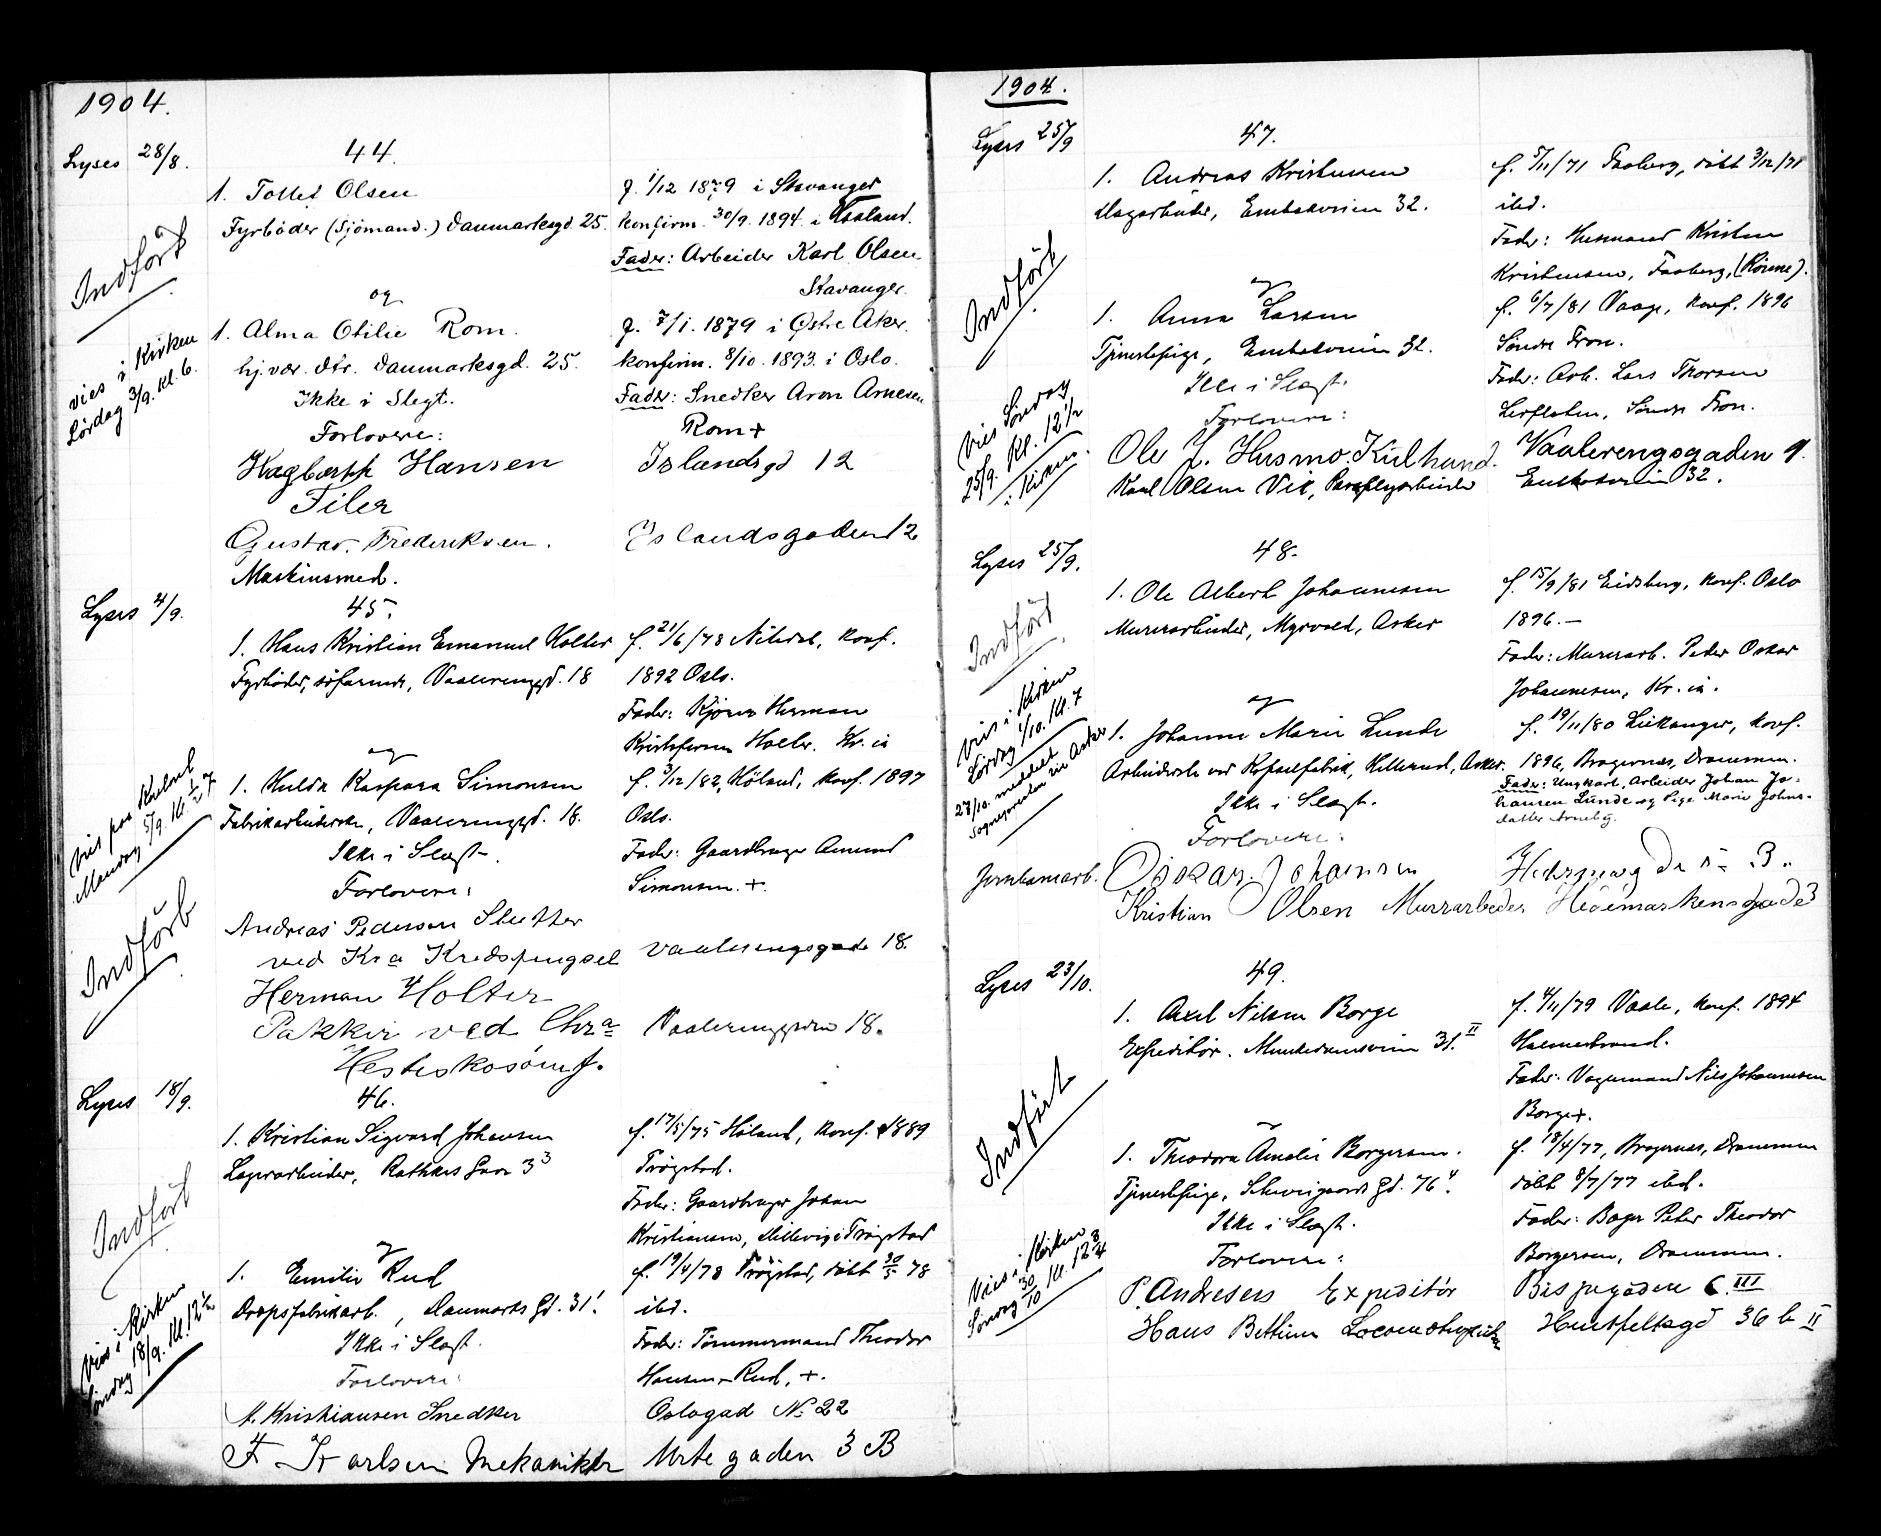 1904.
Lyses 28/8.
44.
1. Tollef Olsen
Fyrböder (Sjömand.) Danmarksgd. 25.
f. 1/12 1879 i Stavanger
konfirm. 30/9. 1894 i Haaland.
Fader: Arbeider Karl Olsen
Stavanger.
Indfört
og
1. Alma Otilie Rom.
hj. vær. dtr. Danmarksgd. 25.
Ikke i Slegt.
f. 7/1. 1879 i Østre Aker.
konfirm. 8/10. 1893. i Oslo.
Fader: Snedker Aron Arnesen
Rom +
vies i Kirken
Lördag 3/9. Kl. 6.
Forlovere:
Hagbarth Hansen
Filer
Islandsgd 12
Gustav. Frederiksen.
Maskinsmed.
Islandsgaden 12
Lyses 4/9.
45.
1. Hans Kristian Emanuel Holter
Fyrböder, söfarende, Vaalerenggd. 18
f. 21/6/78 Nitedal, konf.
1892 Oslo.
Fader: Kjörer Herman
Kristofersen Holter. Kr. ia
og
1. Hulda Kaspara Simonsen
Fabrikarbeiderske, Vaalerenggd. 18.
Ikke i Slægt.
f. 3/12/82, Höland, konf. 1897
Oslo.
Fader: Gaardbruger Amund
Simonsen. +.
Vies paa Kontoret
Mandag 5/9. Kl. 7
Indfört
Forlovere:
Andreas Pedersen Slutter
ved Kra Kredsfængsel
Vaalerengsgade 18.
Herman Holter
Pakker ved Chra
Hesteskosömf.
Vaalerenggaden 18.
Lyses 18/9.
46.
1. Kristian Sigvard Johansen
Lagerarbeider, Rathkes Gade 3 3
f. 17/5/75 Höland, konf. 1889
Trögstad.
Fader: Gaardbruger Johan
Kristiansen, Millevig i Trögstad
Indfört
og
1. Emilie Rud
Dropsfabrikarb., Danmarks Gd. 31.
Ikke i Slægt.
f. 19/4/78 Trögstad, döbt 30/5 78
ibd.
Fader: Tömmermand Theodor
Hansen Rud, +.
Vies i Kirken
Söndag 18/9. Kl. 12 1/2
Forlovere:
M. Kristiansen Snedker
Oslogad No 22
F Karlsen Mekaniker
Urtegaden 3 B
1904.
Lyses 25/9
47.
1. Andreas Kristensen
Lagerarbeider, Enebakveien 32.
f. 5/11/71 Faaberg, döbt 3/12/71
ibd.
Fader: Husmand Kristen
Kristensen, Faaberg,
Indfört
og
1. Anna Larsen
Tjenestepige, Enebakveien 32.
Ikke i Slægt.
f. 6/7/81 Vaage, konf. 1896
Söndre Fron.
Fader: Arb. Lars Thorsen
Leirfloten, Söndre Fron.
Vies Söndag
25/9. Kl. 12 1/2
i Kirken.
Forlovere:
Ole J. Husmo. Kulhand.
Vaalerengsgaden 9.
Karl Olsen Vik, Paraplyarbeider
Enebakveien 32.
Lyses 25/9.
48.
1. Ole Albert Johannesen
Murerarbeider, Myrvold, Asker
f. 15/9/81 Eidsberg, konf. Oslo
1896.—
Fader: Murerarb. Peder Oskar
Johannesen, Kr. ia.
Indfört
og
1. Johanne Marie Lunde
Arbeiderske ved Kapselfabrik, Hellerud, Asker.
Ikke i Slægt.
f. 19/11/80 Leikanger, konf.
1896, Bragernes, Drammen.
Fader: Ungkarl, Arbeider Johan Jo-
hansen Lunde og Pige Marie Johns-
datter Arneby.
Vies i Kirken
Lördag 1/10. Kl. 7
28/10. meddelt
Sognepresten i Asker
Forlovere:
Jernbanearb. Oskar. Johansen
3.
Kristian Olsen Murrarbeder Hedemarkensgade 3
Lyses 23/10.
49.
1. Axel Nilsen Borge
Expeditör. Munkedamsveien 31. II
f. 4/11/79 Vaale, konf. 1894
Holmestrand.
Fader: Vognmand Nils Johannesen
Borge +.
Indfört
1. Theodora Amalie Borgersen.
Tjenestepige, Schweigaards Gd. 76 4.
Ikke i Slægt.
f. 18/4/77, Bragernes, Drammen
döbt 8/7/77 ibd.
Fader: Bager Peter Theodor
Borgersen, Drammen.
Vies i Kirken
Söndag 30/10 Kl. 12 3/4
Forlovere:
P. Andresen Expeditör
Bispegaden 6. III
Hans Bettum
Hertfeltsgd 36 b II